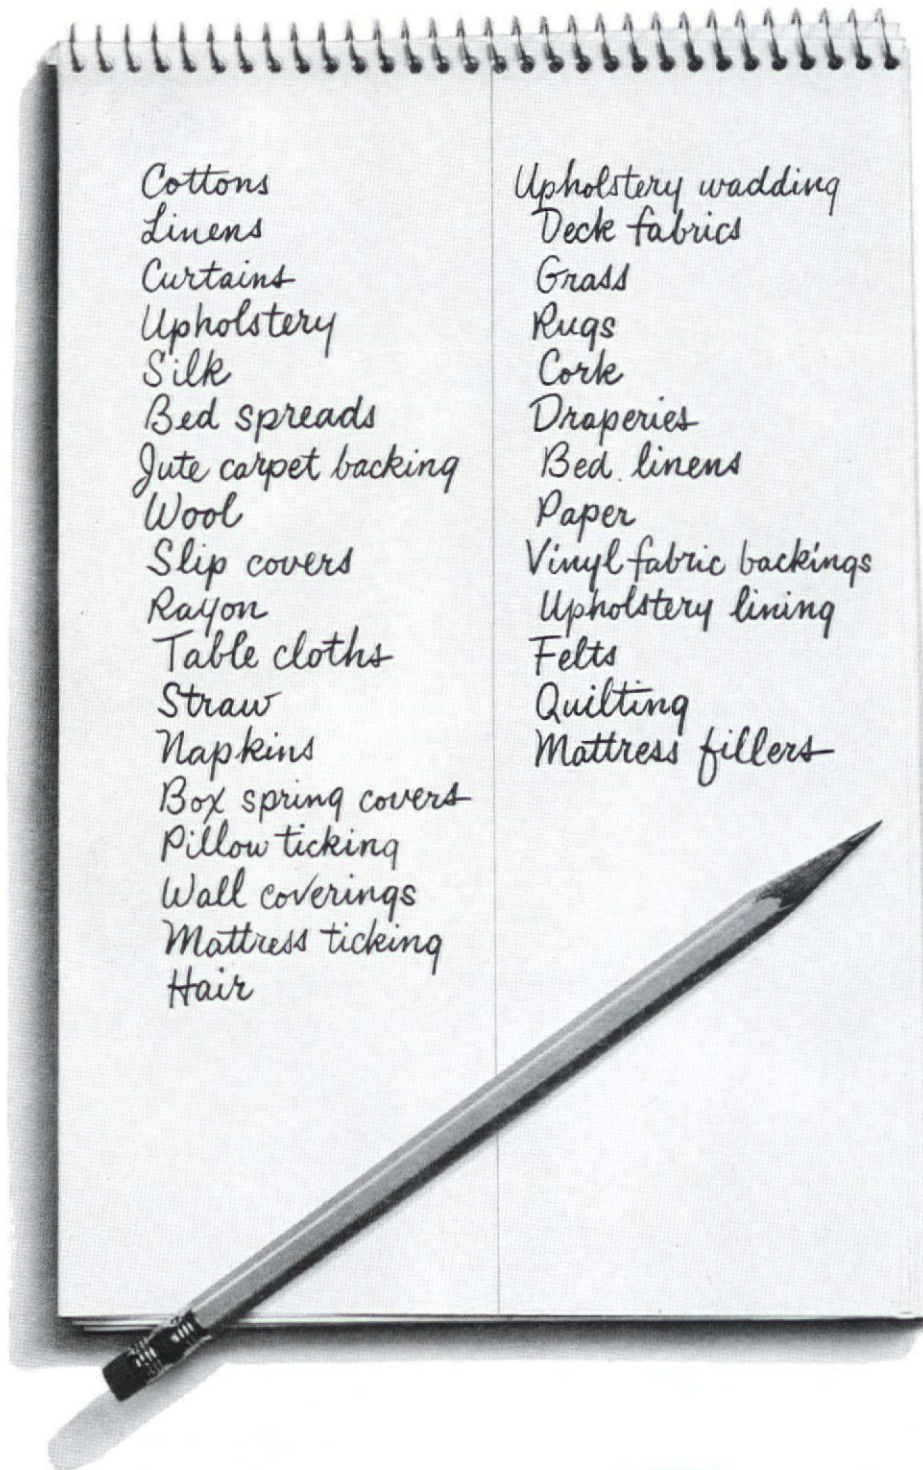 Cottons
Linens
Curtains
Upholstery
Silk
Bed spreads
Jute carpet backing
Wool
Slip covers
Rayon
Table cloths
Straw
Napkins
Box spring covers
Pillow ticking
Wall coverings
Mattress ticking
Hair
Upholstery wadding
Deck fabrics
Grass
Rugs
Cork
Draperies
Bed linens
Paper
Vinyl fabric backings
Upholstery lining
Felts
Quilting
Mattress fillers